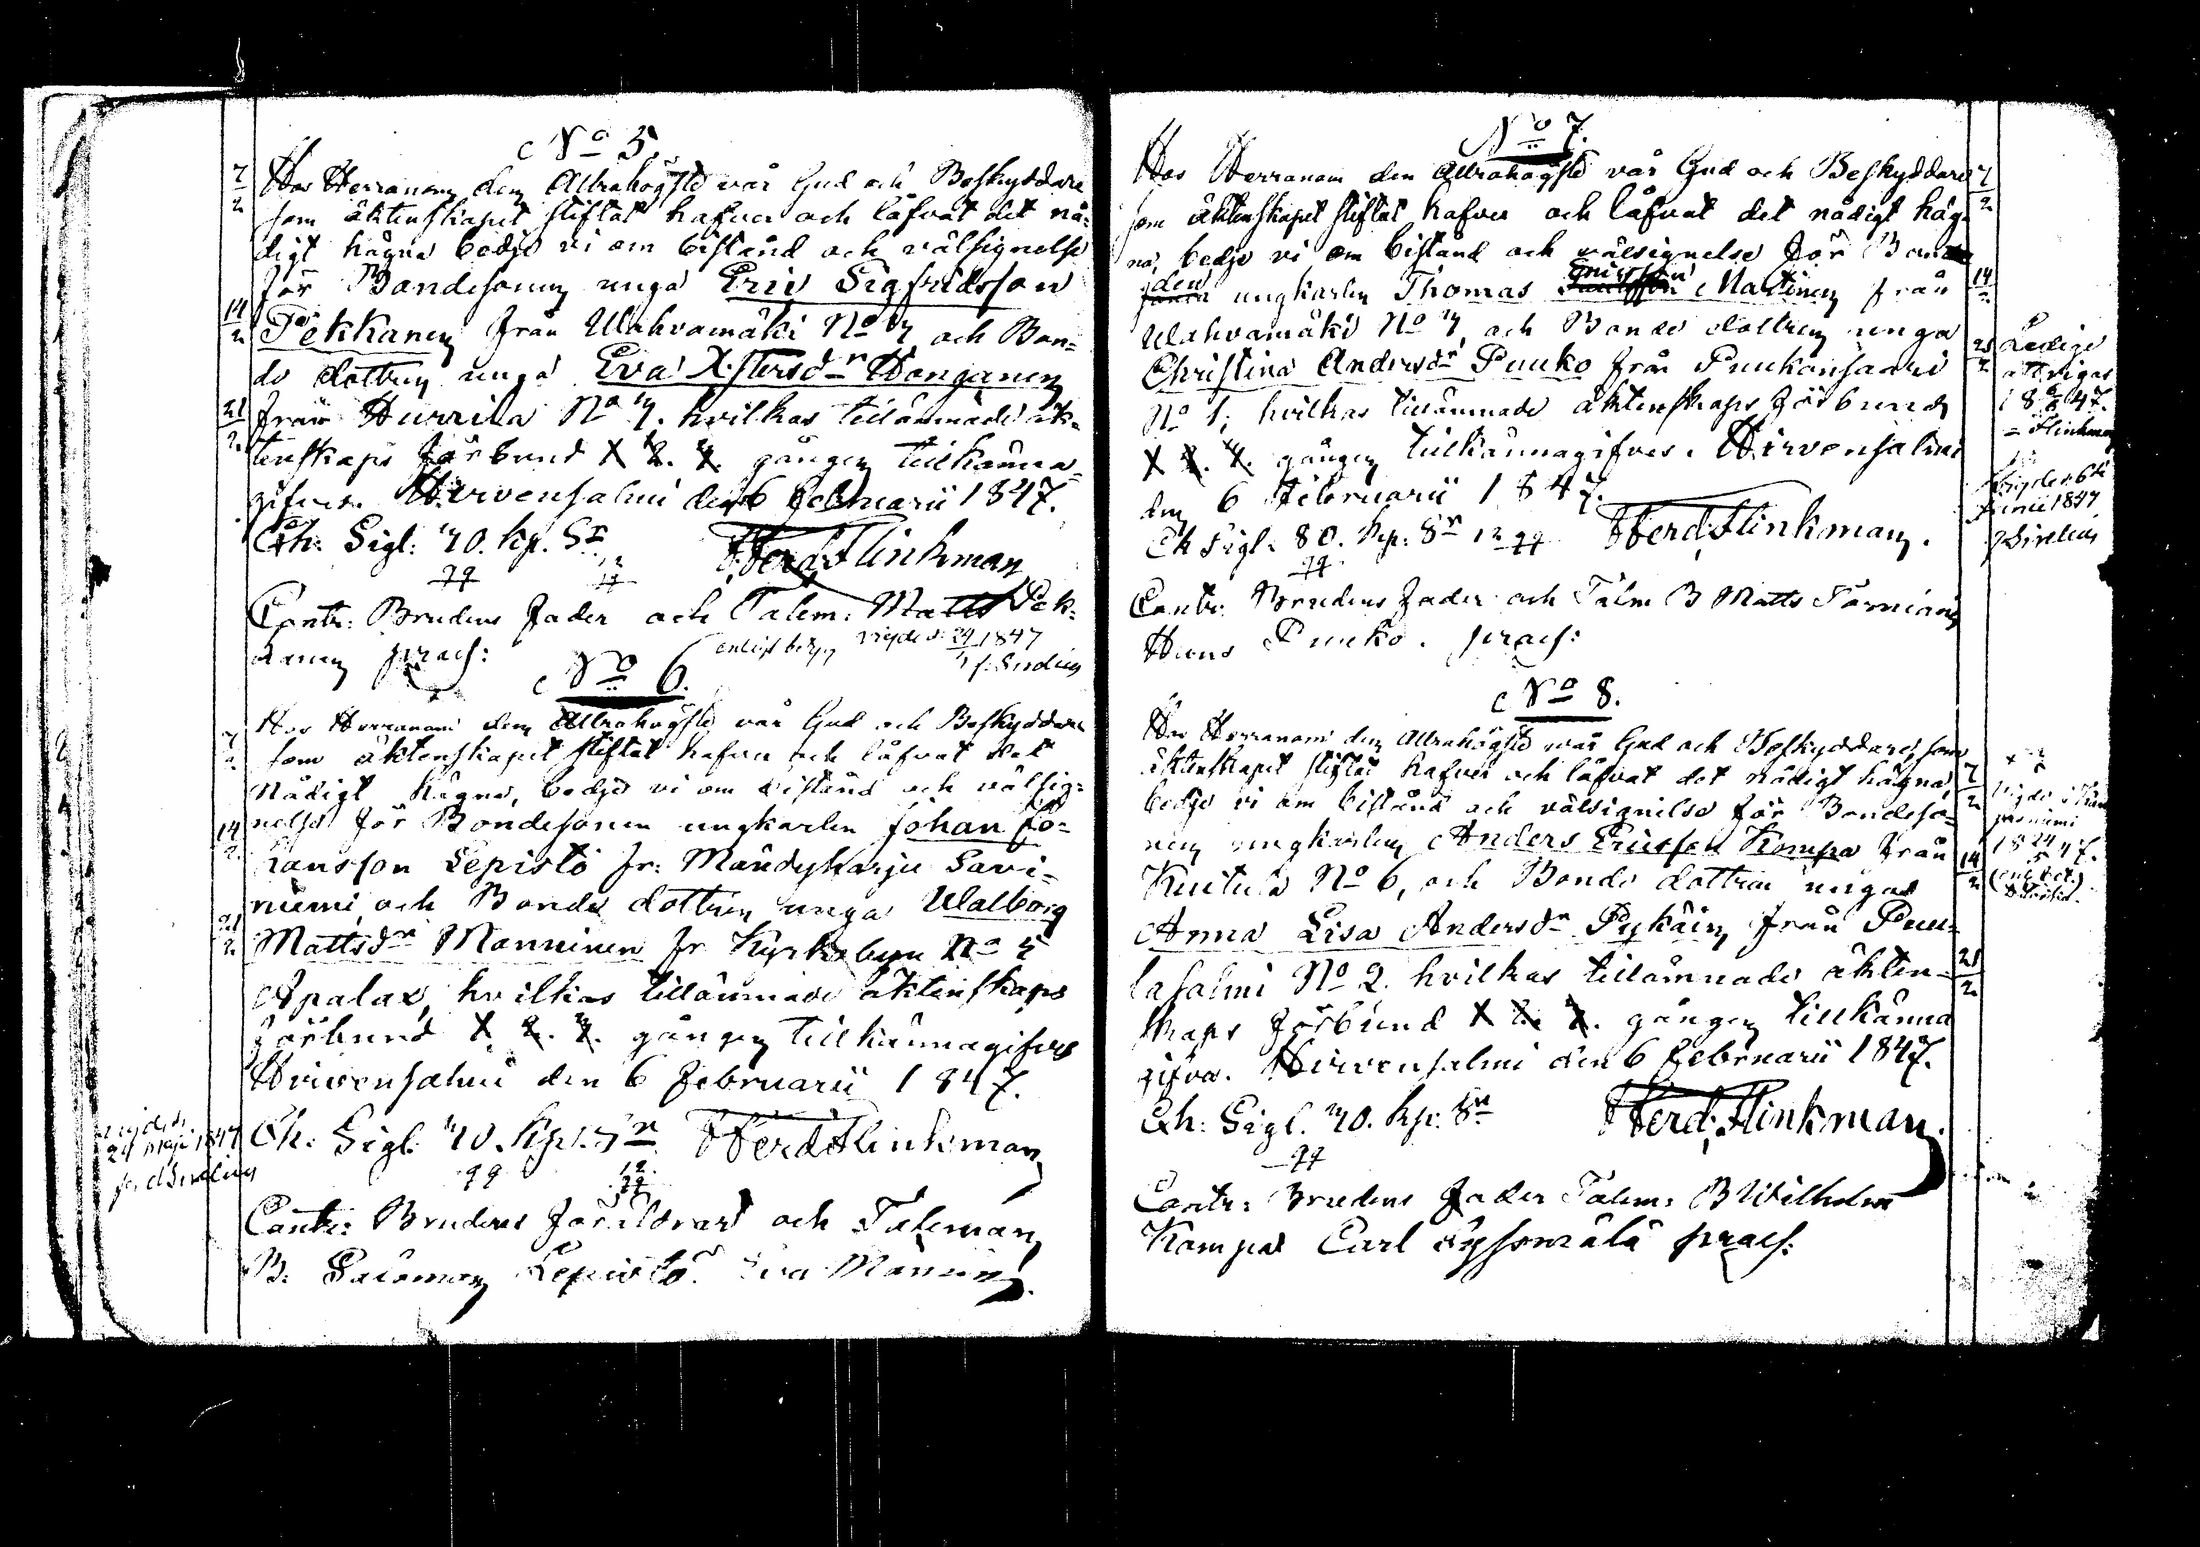 No 5.
7/2
Hos Herranom den Allrahögste vår Gud och Beskyddare
som äktenskapet stiftat hafver och låfvat det nå=
digt hägna bedje vi om bistånd och välsignelse
för Bondesonen unga Eric Sigfridsson
14/2
Pekkanen från Wahvamäki No 4 och Bon=
de dottren unga Eva X:stersdr Honganen
21/2
från Hurrila No 4. hvilkas tillämnade äk=
tenskaps förbund 1. 2. 3. gången tillkänna=
gifves. Hirvensalmi den 6 februarii 1847.
Ch: Sigl: 40. kp. Sr
Ferd: Flinkman
Contr: Brudens fader och Talem: Matts Pek=
kanen præs:
No 6.
7/2
Hos Herranom den Allrahögste vår Gud och Beskyddare
som äktenskapet stiftat hafver och låfvat det
nådigt hägna, bedje vi om bistånd och välsig=
14/2
nelse för Bondesonen ungkarlen Johan Jo=
hansson Lepistö fr: Mändyharju Savi=
niemi och Bonde dottren unga Walborg
21/2
Mattsdr Manninen fr Kyrkobyn No 5
hvilkas tillämnade äktenskaps
förbund 1. 2. 3. gången tillkännagifves
Hirvensalmi den 6 februarii 1847.
24 maji 1847
Ch: Sigl: 40. kp. Sr Ferd Flinkman
Contr: Brudens föräldrar och Taleman
B: Salomon Lepistö. Eva Mannin
No 7.
Hos Herranom den Allrahögste vår Gud och Beskyddare
7/2
som äktenskapet stiftat hafver och låfvat det nådigt häg=
na, bedje vi om bistånd och välsignelse för Bon
den ungkarlen Thomas Ericsson Martinen från
14/2
Wahvamäki No 4, och Bonde dottren unga
Christina Andersdr Puuko från Puukonsaari
21/2
No 1, hvilkas tillämnade äktenskaps förbund
1. 2. 3. gången tillkännagifves. Hirvensalmi
den 6 februarii 1847.
Ch Sigl: 80. kp: Sr Ferd: Flinkman.
Contr: Brudens fader och Talm B Matts Tarniain
Hans Puuko. præs:
Ledige
att vigas
1847.
Flinkman
Vigde 6te
Junii 1847
Sirelius
No 8.
Hos Herranom den Allrahögste vår Gud och Beskyddare, som
äktenskapet stiftat hafver och låfvat det nådigt hägna,
7/2
bedje vi om bistånd och välsignelse för Bondeso=
nen ungkarlen Anders Ericsson Kompa från
14/2
Kuitula No 6, och Bonde dottren unga
Anna Lisa Andersdr Pykäin från Puu=
21/2
lasalmi No 2. hvilkas tillämnade äkten=
skaps förbund 1. 2. 3. gången tillkänna
gifves. Hirvensalmi den 6 februarii 1847.
Ch: Sigl. 40. kp: Sr
Ferd: Flinkman.
Contr: Brudens fader Talem: B Wilhelm
Kompa Carl præs: